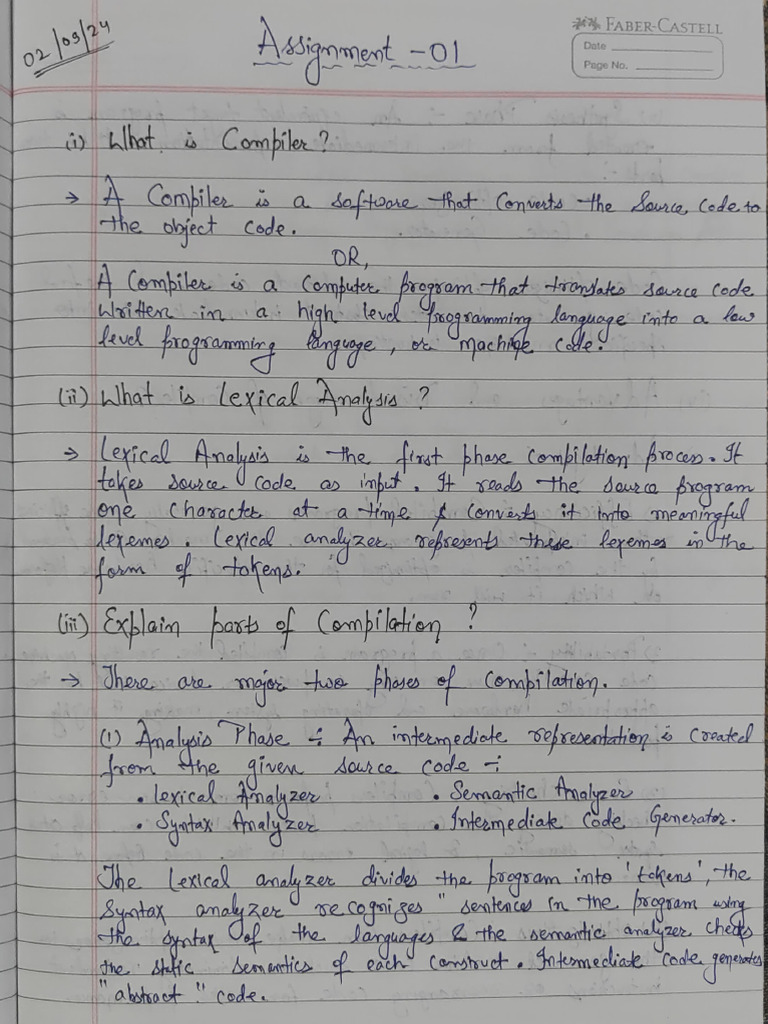 02/09/24
Assignment -01
FABER-CASTELL
Date
Page No.
(i) What is Compiler?
→ A Compiler is a software that Converts the Source Code to
the object code.
OR,
A Compiler is a computer program that translates source code
written in a high level programming language into a low
level programming language, or machine code.
(ii) What is Lexical Analysis?
→ Lexical Analysis is the first phase compilation process. It
takes source code as input. It reads the source program
one character at a time & converts it into meaningful
lexemes. Lexical analyzer represents these lexemes in the
form of tokens.
(iii) Explain parts of Compilation?
→ There are major two phases of compilation.
(1) Analysis Phase :- An intermediate representation is created
from the given source code :-
• Lexical Analyzer • Semantic Analyzer
• Syntax Analyzer • Intermediate Code Generator.
The Lexical analyzer divides the program into 'tokens', the
Syntax analyzer recognizes " sentences in the program using
the syntax of the languages & the semantic analyzer checks
the static semantics of each construct. Intermediate code generates
"abstract" code.